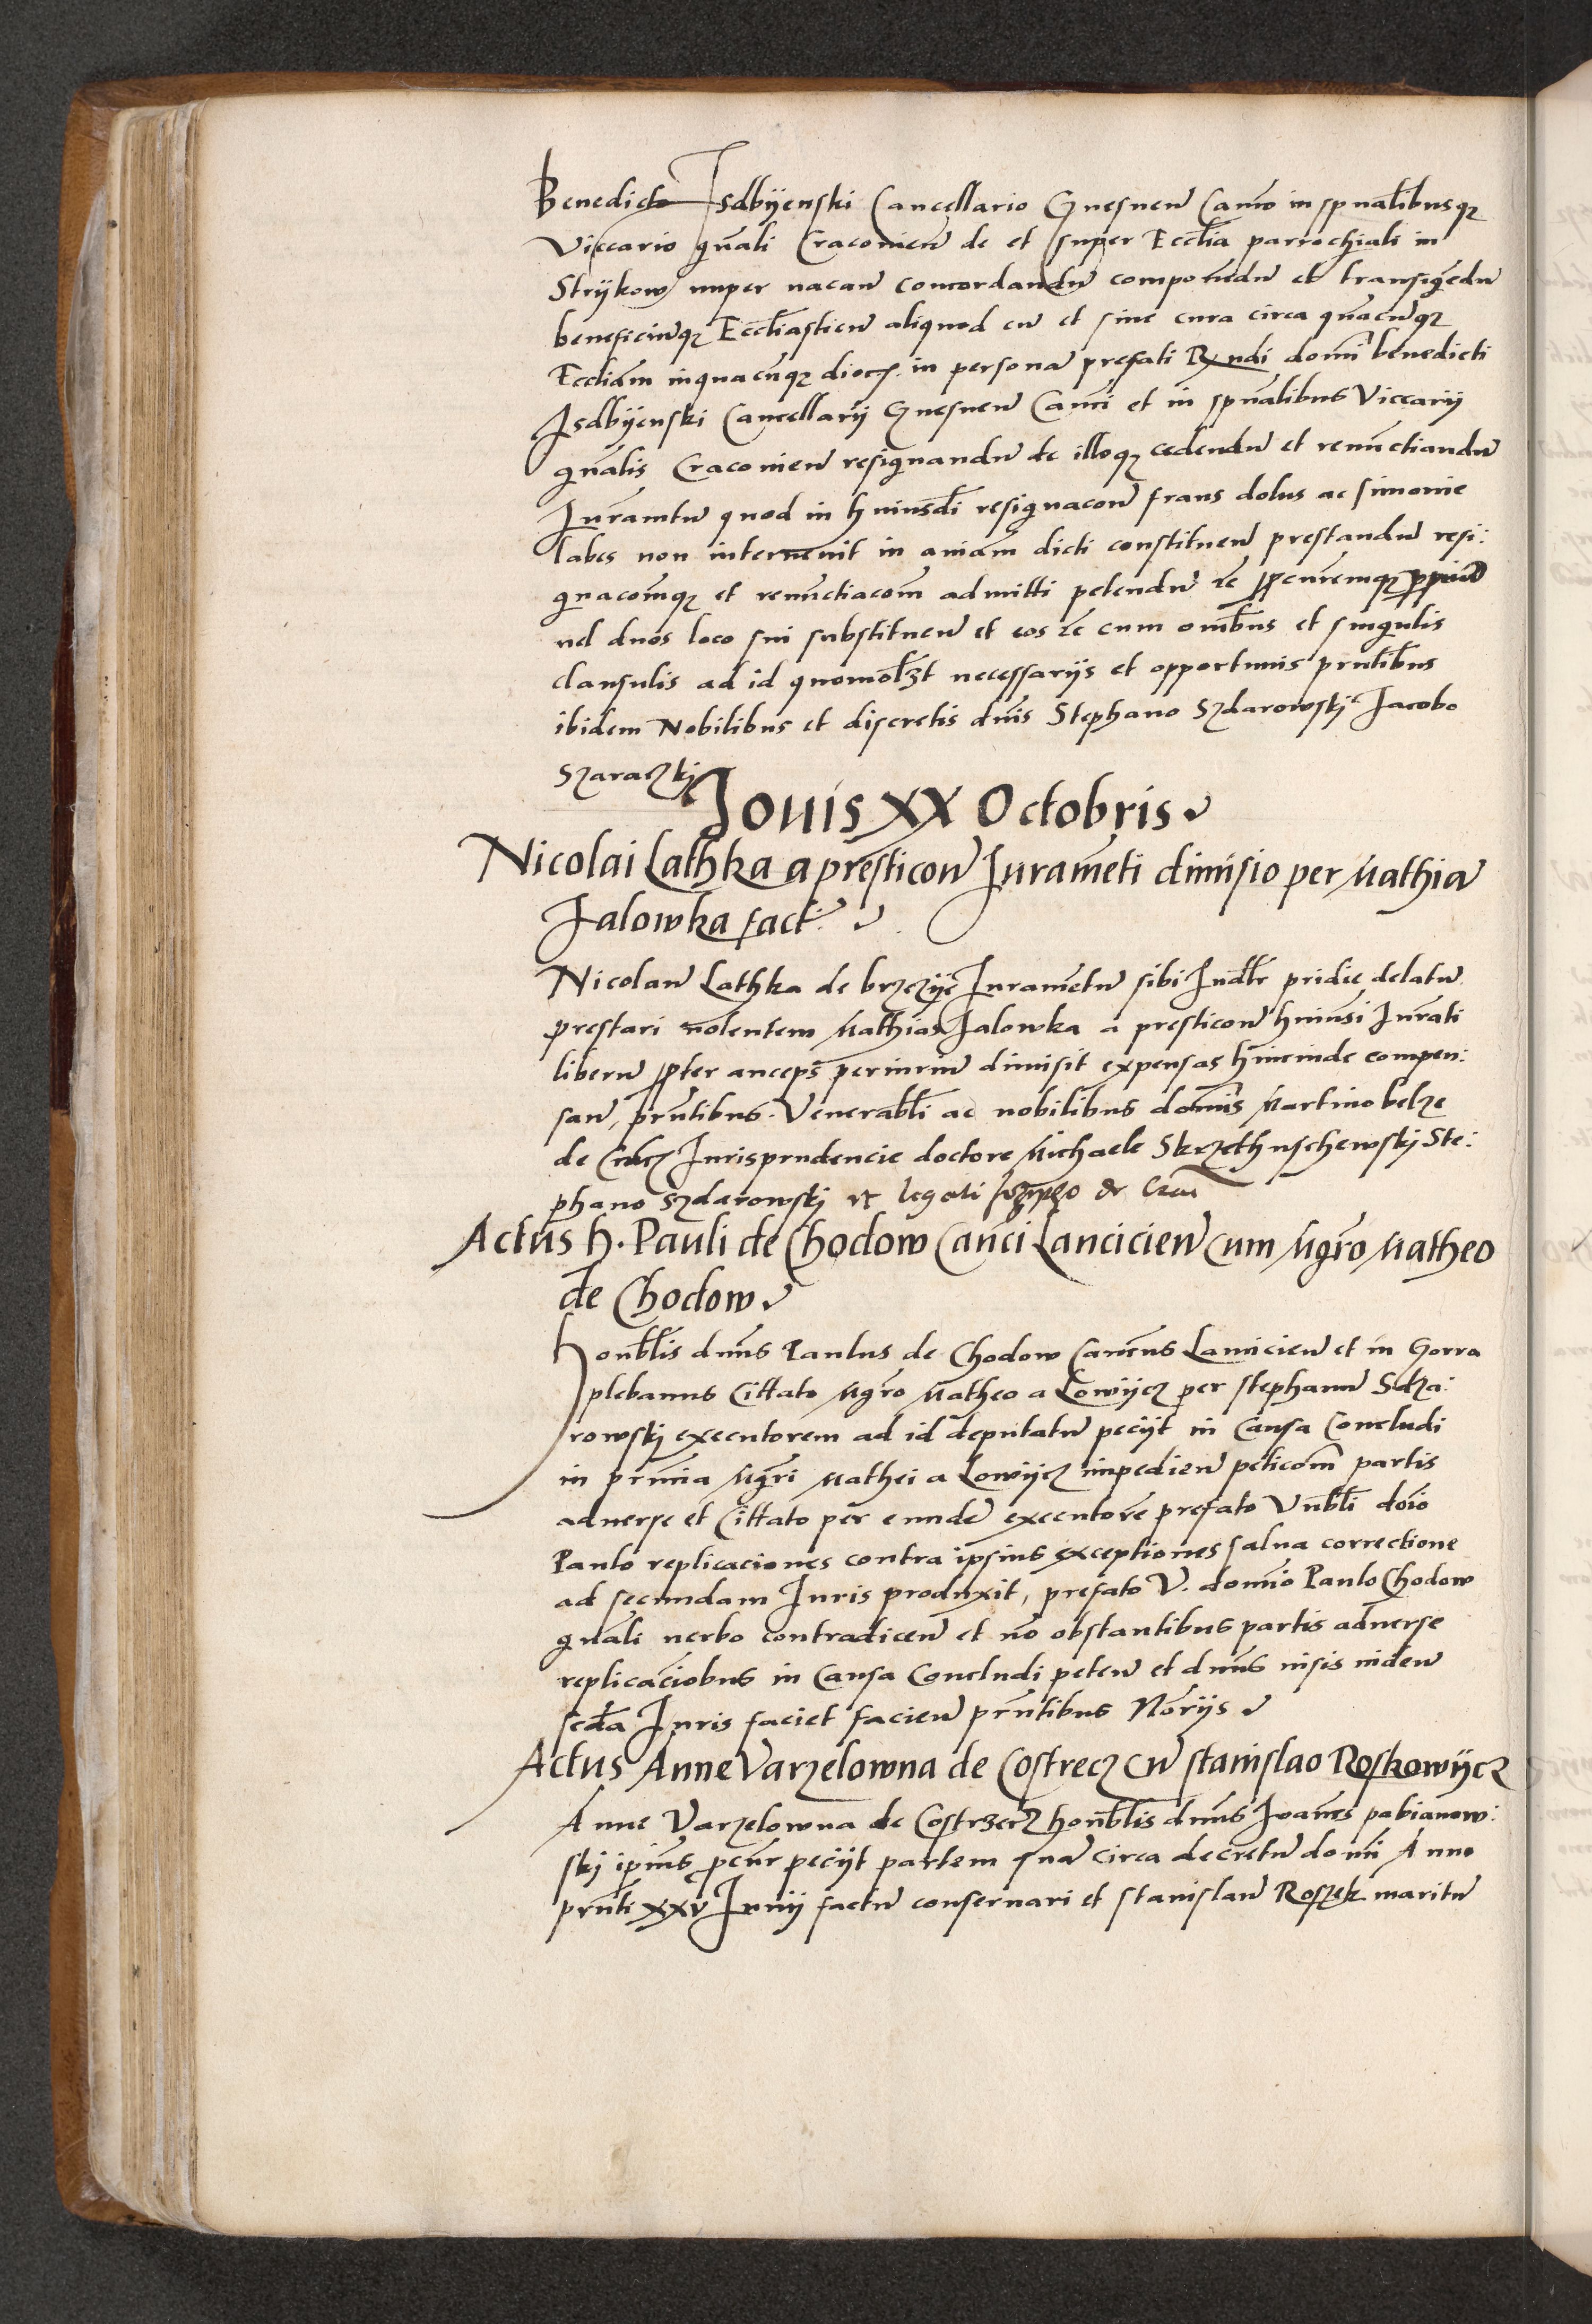 Benedicto Isdbyenski Cancellario Gnesnen Canco in spualibusqz
Viccario gnali Cracovien de et super Ecclia parrochiali in
Strykow nuper vacan concordandu componedu et transigedu
beneficiuqz Eccliasticu aliquod cu et sine cura circa quacuqz
Eccliam in quacuqz dioc. in persona prefati Rndi domi benedicti
Isdbyenski Cancellarii Gnesnen Canci et in spualibus Viccarii
gnalis Cracovien resignandu de illoqz cedendu et renuctiandu
Juramtu quod in huiusdi resignacon fraus dolus ac simonie
labes non intervenit in aniam dicti constituen prestandu resi:
gnacomqz et renuctiacom admitti petendu
vel duos loco sui substituen et eos cum omibus et singulis
clausulis ad id quomolzt necessariis et opportunis prntibus
ibidem Nobilibus et discretis dnis Stephano Szdarowski Jacobo
Szaraczki
Jouis XX Octobris
Nicolai Lathka a presticon Jurameti dimisio per Mathia
Jalowka fact:
Nicolau Lathka de brzezye Jurametu sibi Judlr pridie delatu
prestari volentem Mathias Jalowka a presticon huiusi Jurati
liberu propter anceps periuriu dimisit expensas hincinde compen:
san, prntibus. Venerabli ac nobilibus domis Martino belze
de Jurisprudencie doctore Michaele Skrzethuschewski Ste:
phano Szdarowski et legati de
Actus h. Pauli de Chodow Canci Lancicien Cum Mgro Matheo
de Chodow
honoblis dnus Paulus de Chodow Cancus Lancicien et in Gorra
plebanus Cittato Mgro Matheo a Lowycz per stephanu Sdza:
rowski executorem ad id deputatu peciit in Causa Concludi
in prnia Mgri Mathei a Lowycz impedien peticom partis
adverse et Cittato per eunde executore prefato Vnbli doio
Paulo replicaciones contra ipsius exceptiones salva correctione
ad secundam Juris produxit, prefato V. domio Paulo Chodow
gnali verbo contradicen et no obstantibus partis adverse
replicaciobus in Causa Concludi peten et dnus visis viden
scda Juris faciet facien prntibus Noriis
Actus Anne Varzelowna de Costrecz cu stanislao Roskowycz
Anne Varzelowna de Costrzecz honoblis dnus Joanes pabianow:
ski ipius pcur peciit partem sua circa decretu domi Anno
prnti XXV Junii factu conservari et stanislau Roszek maritu